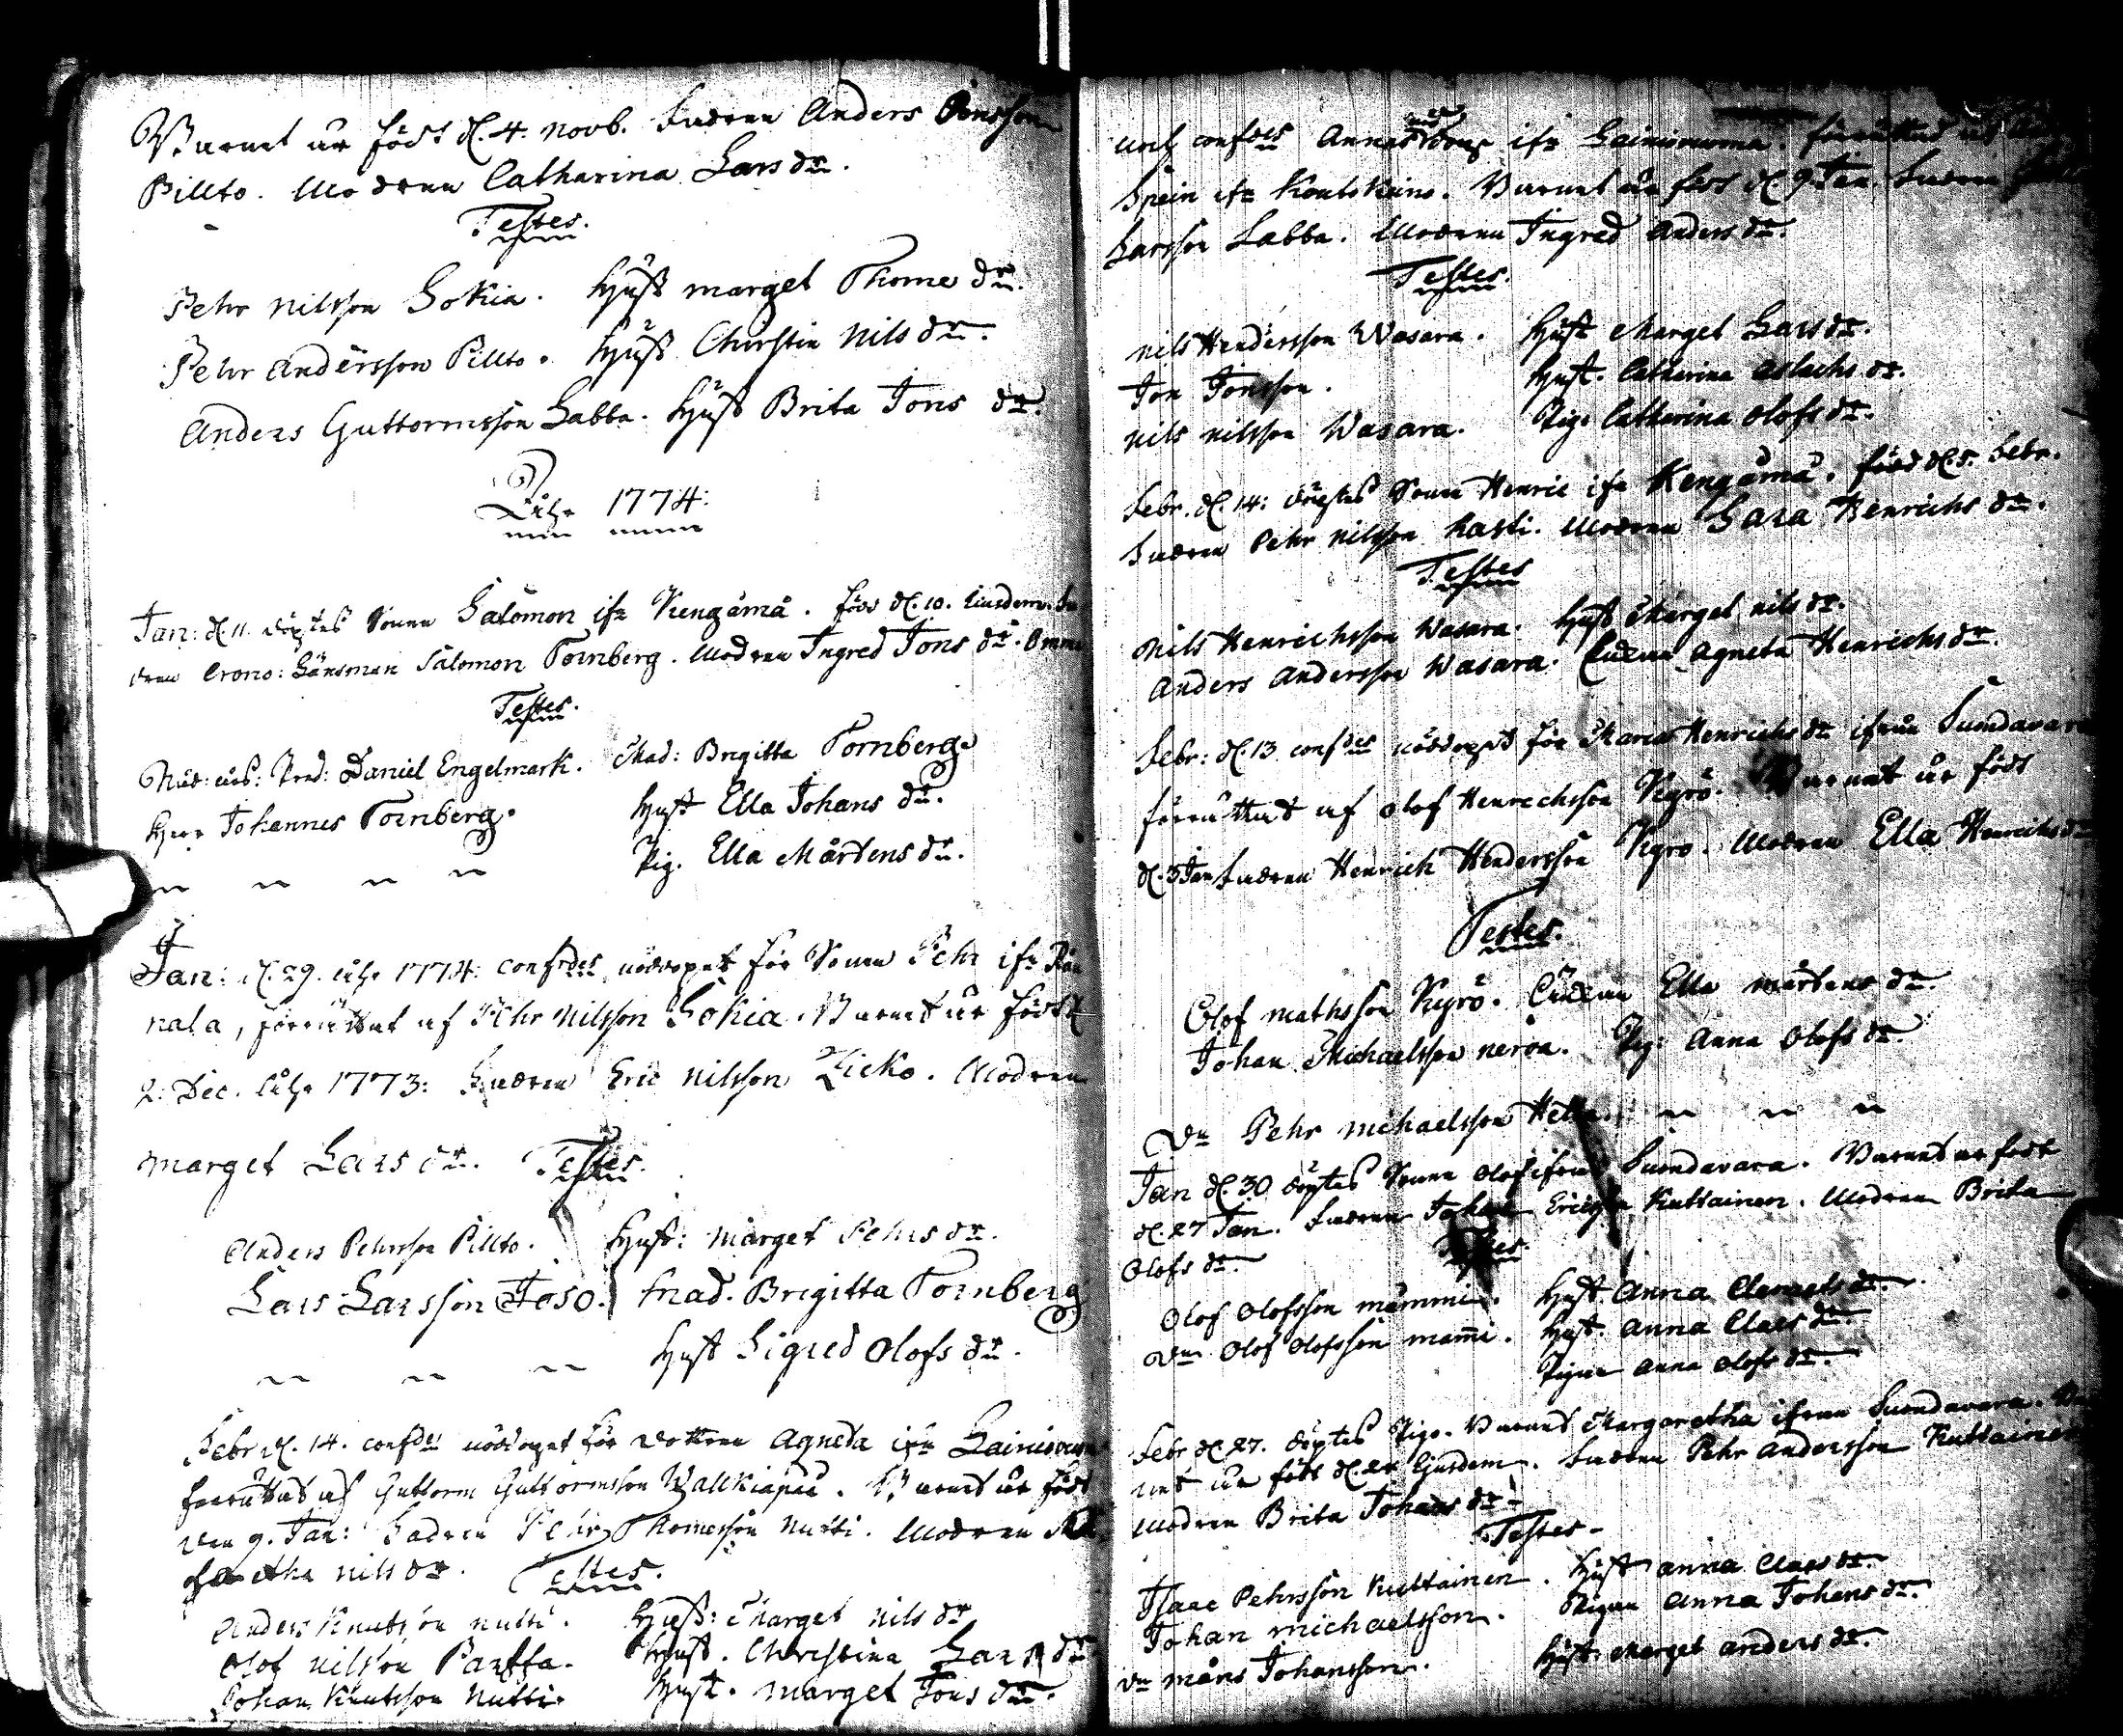 Barnet är födt d. 4. novb. Fadren Anders Jönsson
Pillto. Modren Catharina Lars dr.
Testes.
Pehr Nilsson Sokia. Hust marget Thome dr.
Pehr Andersson Pillto. Hust Christin Nils dr.
Anders Guttormsson Labba. Hust Brita Jons dr.
Åhr 1774:
Jan: d. 11. döptes Sonen Salomon ifr Kengämä. föd d. 10. Eiusdem. Fa
dren Crono: Länsman Salomon Tornberg. Modren Ingred Jons dr.
Testes.
Daniel Engelmark. Mad: Brigitta Tornberg
Herr Johannes Tornberg. Hust Ella Johans dr.
Pig. Ella Mårtens dr.
Jan: d. 29. åhr 1774: confdes nöddopet för Sonen Pehr ifr
nala, förrättat af Pehr Nilsson Sokia. Barnet är födt d.
2: Dec. åhr 1773: Fadren Eric Nilsson Zicko. Modren
marget Lars dr. Testes.
Anders Pehrsson Pillto. Hust: marget Pehrs dr.
Lars Larsson Joso. mad. Brigitta Tornberg
Hust Sigred Olofs dr.
Febr d. 14. confdes nöddopet för dottren Agneta ifr
förrättat af Guttorm Guttormsson Walkiapää. Barnet är födt
den 9. Jan: Fadren Pehr Thomesson Nutti. Modren Ma
garetha Nils dr. Testes.
Anders Knutsson nutti. Hust: Marget Nils dr
Olof Nilsson Partta. Hust. Christina Lars dr
Johan Knutsson Nutti. Hust. Marget Jons dr.
confdes Annas dop ifr Lainiovuoma. förrättat af
Spein ifr Koutokeino. Barnet är född d. 9. Jan. Fadren
Larsson Labba. Modren Ingred Anders dr.
Testes.
Nils Hendersson Wasara. Hust Marget Lars dr.
Jon Jonsson. Hust. Catharina Aslachs dr.
Nils Nilsson Wasara. Pig. Catharina Olofs dr.
Febr. d. 14: döptes Sonen Henric ifr Kengämä. föd d. 5. Febr.
Fadren Pehr Nilsson Rasti. Modren Sara Henrichs dr.
Testes
Nils Henrichsson Wasara. Hust Marget Nils dr.
Anders Andersson Wasara. Agneta Henrichs dr.
Febr: d. 13 confdes nöddopet för Maria Henrichs dr ifrån Suondavara
förrättat af Olof Henrechsson Kyrö. Barnet är födt
d. 3 Jan Fadren Henrich Hendersson Kyrö. Modren Ella Henrichs dr
Testes.
Olof mathsson Kyrö. Ella mårtens dr.
Johan Michaelsson nerva. Pig: Anna Olofs dr.
Dr Pehr Michaelsson
Jan d. 30 döptes Sonen Olof ifrån Suondavara. Barnet är födt
d. 27 Jan. Fadren Johan Ericsson Kuttainen. Modren Brita
Olofs dr. Testes.
Olof Olofsson mämmi. Hust Anna Clemets dr.
Dr Olof Olofsson mammi. Hust. Anna Claes dr.
Pigan Anna Olofs dr.
Febr d. 27. döptes Pigo-Barnet Margaretha ifrån Suondavara. Bar
net är födt d. 24 Ejusdem. Fadren Pehr Andersson Kuttainen
Modren Brita Johans dr
Testes
Isaac Pehrsson Kuttainen. Hust anna Claes dr.
Johan michaelsson. Pigan Anna Johans dr.
Dr måns Johansson. Hust. Marget Anders dr.